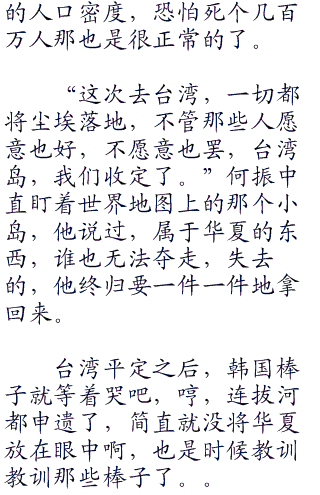 的人口密度，恐怕死个几百
万人那也是很正常的了。
“这次去台湾，一切都
将尘埃落地，不管那些人愿
意也好，不愿意也罢，台湾
岛，我们收定了。”何振中
直盯着世界地图上的那个小
岛，他说过，属于华夏的东
西，谁也无法夺走，失去
的，他终归要一件一件地拿
回来。
台湾平定之后，韩国棒
子就等着哭吧，哼，连拔河
都申遗了，简直就没将华夏
放在眼中啊，也是时候教训
教训那些棒子了。。